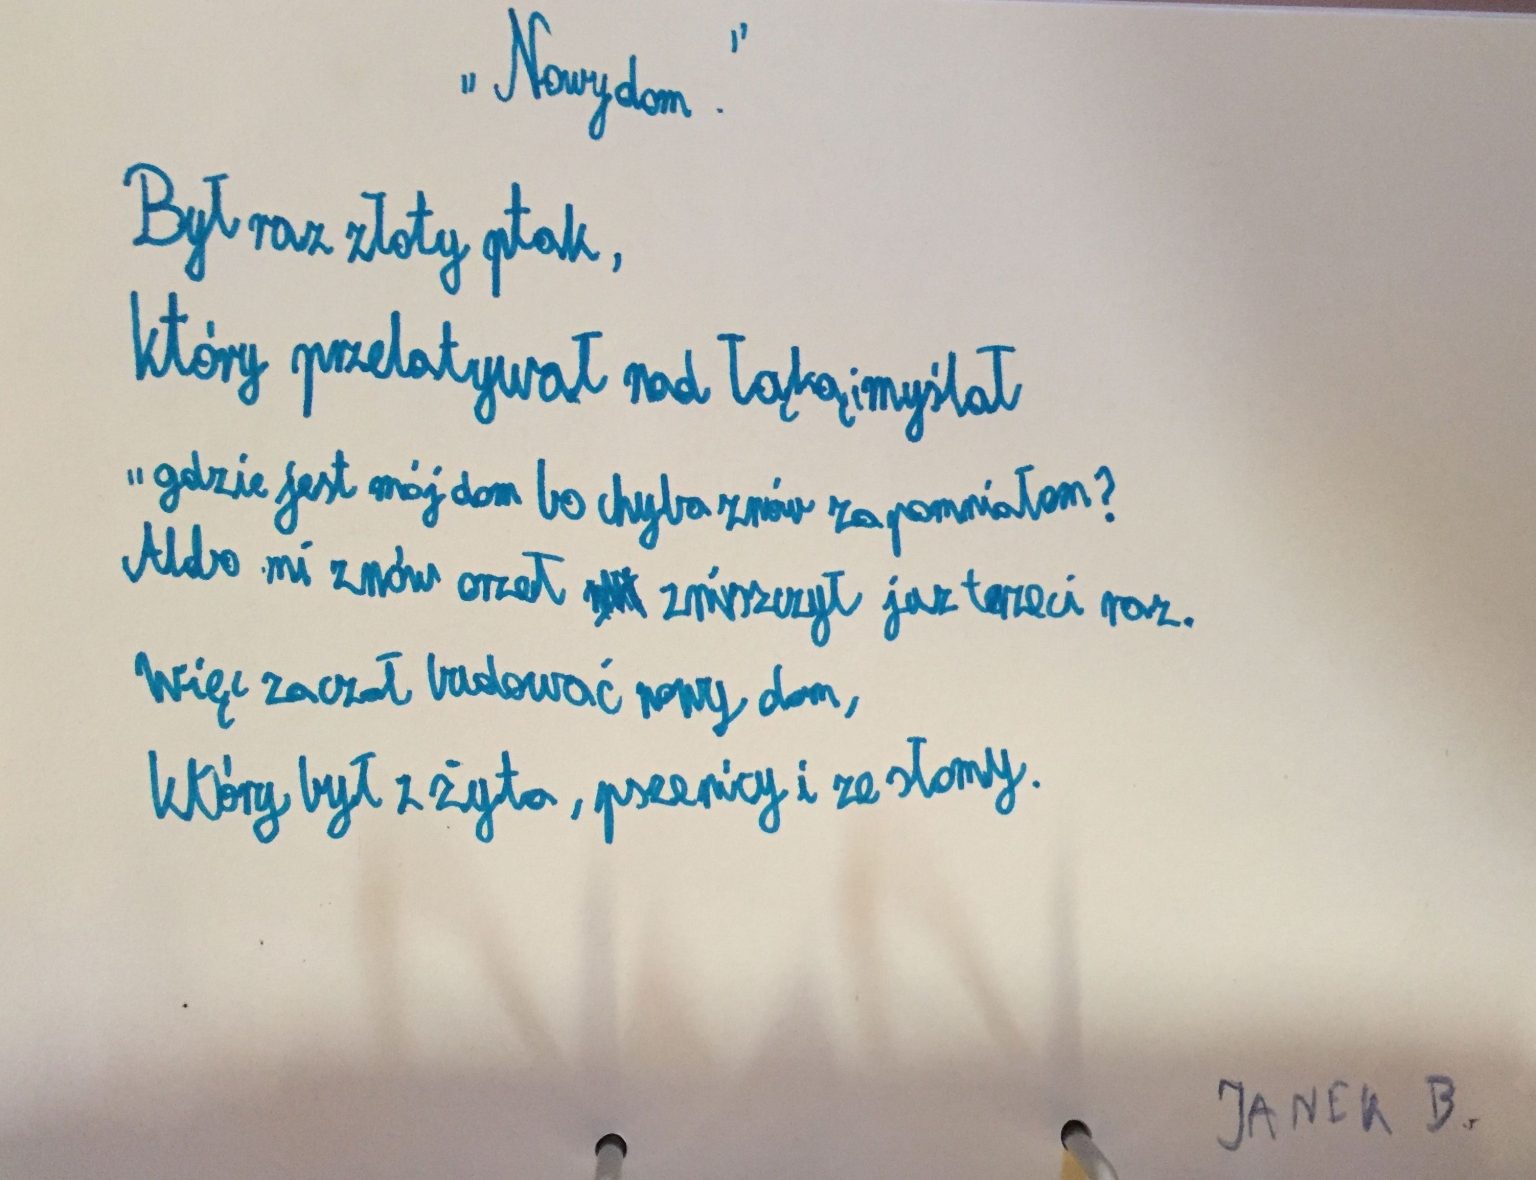 „Nowy dom."
Był raz złoty ptak,
który przelatywał nad łąką i myślał
„gdzie jest mój dom bo chyba znów zapomniałem?
Albo mi znów orzeł zniszczył jaz terzeci raz.
Więc zaczął budować nowy dom,
który był z żyta, pszenicy i ze słomy.
JANEK B.